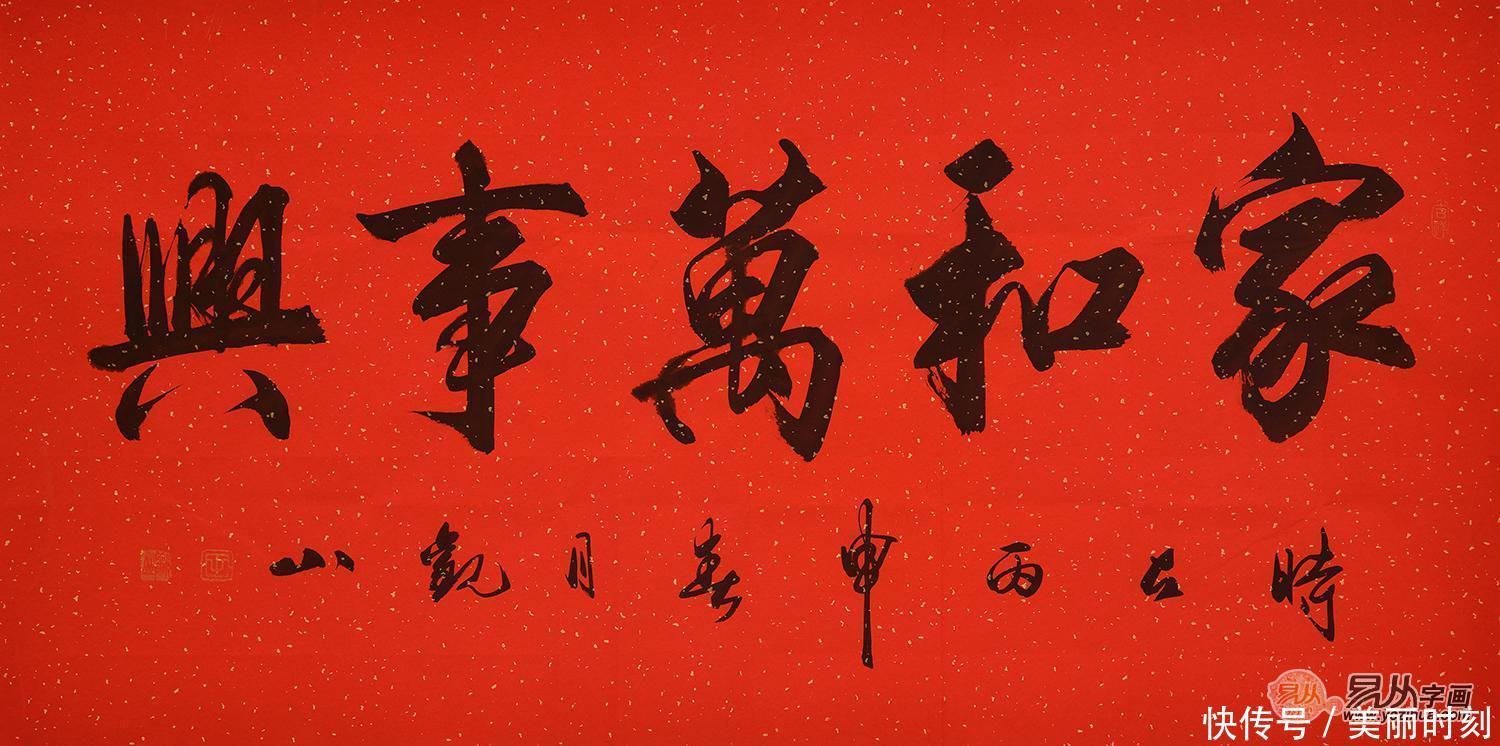 家和萬事興
時在丙申春月觀山
易从字画
快传号 / 美丽时刻